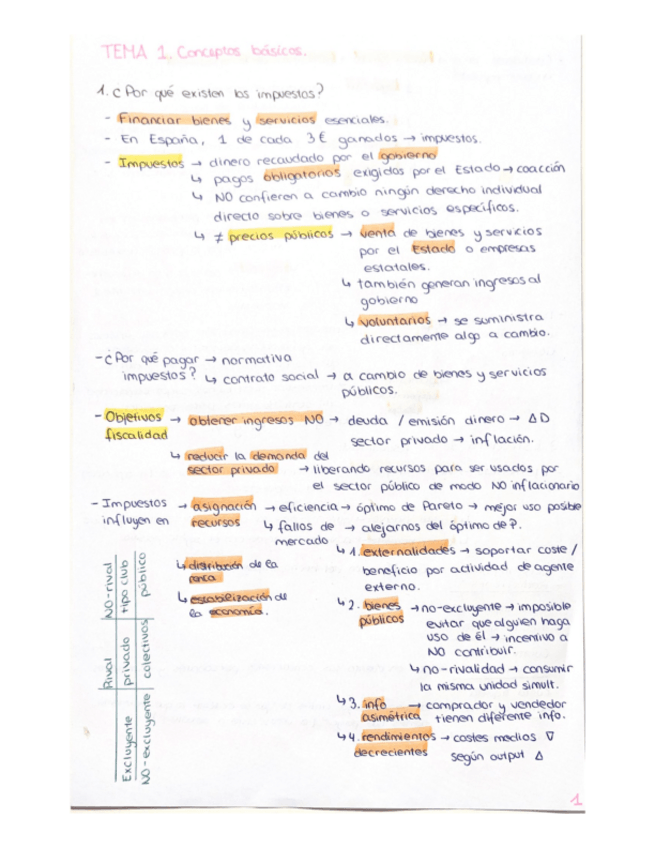 TEMA 1. Conceptos básicos.
1. ¿Por qué existen los impuestos?
- Financiar bienes y servicios esenciales.
- En España, 1 de cada 3€ ganados → impuestos.
- Impuestos → dinero recaudado por el gobierno
↳ pagos obligatorios exigidos por el Estado → coacción
↳ NO confieren a cambio ningún derecho individual
directo sobre bienes o servicios específicos.
↳ ≠ precios públicos → venta de bienes y servicios
por el Estado o empresas
estatales.
↳ también generan ingresos al
gobierno
↳ voluntarios → se suministra
directamente algo a cambio.
- ¿Por qué pagar → normativa
impuestos? ↳ contrato social → a cambio de bienes y servicios
públicos.
- Objetivos → obtener ingresos NO → deuda / emisión dinero → ΔD
fiscalidad sector privado → inflación.
↳ reducir la demanda del
sector privado → liberando recursos para ser usados por
el sector público de modo NO inflacionario
- Impuestos → asignación → eficiencia → óptimo de Pareto → mejor uso posible
influyen en recursos ↳ fallos de → alejarnos del óptimo de P.
mercado
↳ distribución de la
renta
↳ estabilización de
la economía.
↳ 1. externalidades → soportar coste /
beneficio por actividad de agente
externo.
↳ 2. bienes → no-excluyente → imposible
públicos evitar que alguien haga
uso de él → incentivo a
NO contribuir.
↳ no-rivalidad → consumir
la misma unidad simult.
↳ 3. info → comprador y vendedor
asimétrica tienen diferente info.
↳ 4. rendimientos → costes medios ∇
decrecientes según output Δ
Rival NO-rival
Excluyente privado tipo club
NO-excluyente colectivos público
1